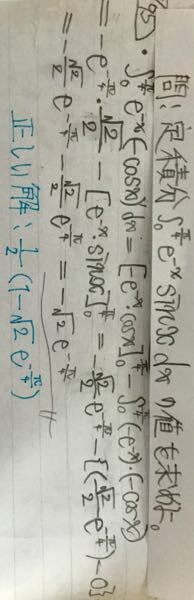 問：定積分 ∫₀^{π/4} e^{-x} sinx dx の値を求めよ。
∫₀^{π/4} e^{-x}(-cosx)'dx = [e^{-x}·cosx]₀^{π/4} - ∫₀^{π/4}(-e^{-x})·(-cosx)
= -e^{-π/4}·√2/2 - [e^{-x}·sinx]₀^{π/4} = -√2/2 e^{-π/4} - {(√2/2 e^{-π/4}) - 0}
= -√2/2 e^{-π/4} - √2/2 e^{-π/4} = -√2 e^{-π/4}
正しい解：1/2 (1-√2 e^{-π/4})